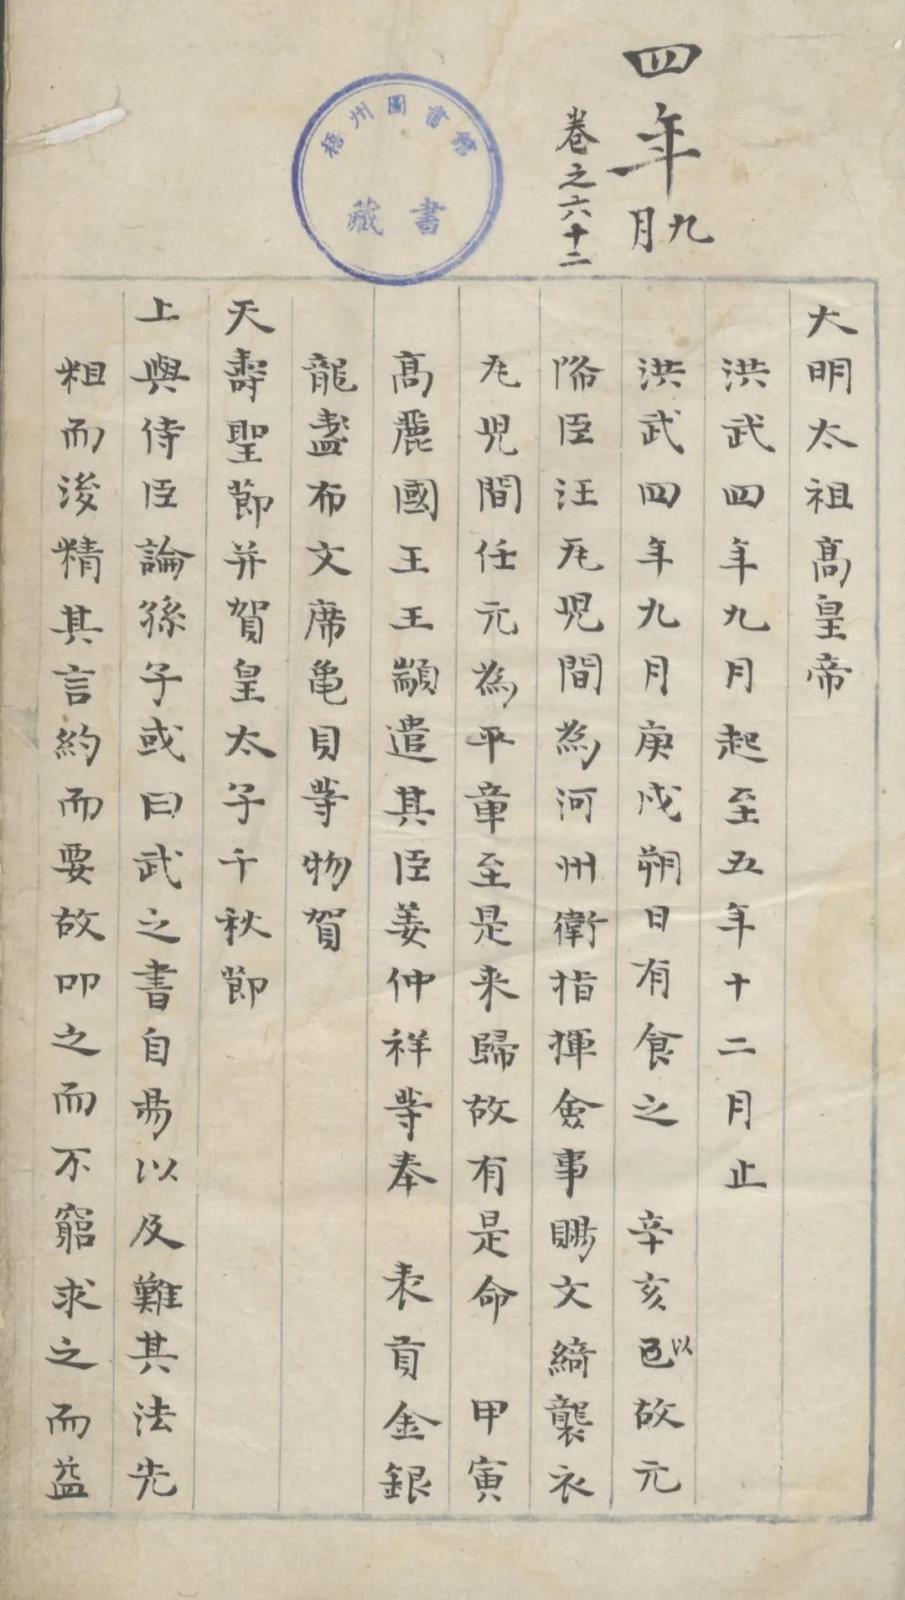 四年
九月
卷之六十二
梧州圖書館
藏書
大明太祖高皇帝
洪武四年九月起至五年十二月止
洪武四年九月庚戌朔日有食之　辛亥以故元
降臣汪瓦児間為河州衛指揮僉事賜文綺襲衣
瓦児間任元為平章至是来歸故有是命　甲寅
高麗國王王顓遣其臣姜仲祥等奉　表貢金銀
龍盞布文席亀貝等物賀
天壽聖節并賀皇太子千秋節
上與侍臣論孫子或曰武之書自易以及難其法先
粗而後精其言約而要故叩之而不窮求之而益